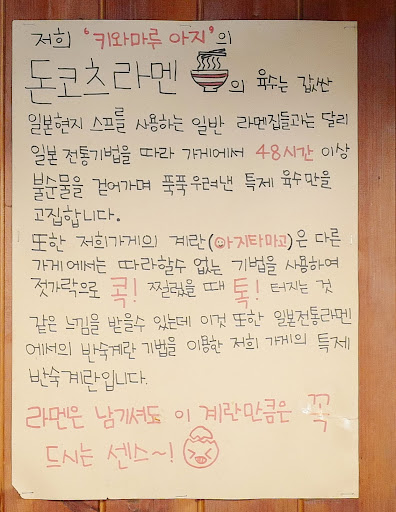 저희 "키와마루 아지"의
돈코츠라멘의 육수는 값싼
일본현지 스프를 사용하는 일반 라멘집들과는 달리
일본 전통기법을 따라 가게에서 48시간 이상
불순물을 걷어가며 푹푹 우려낸 특제 육수만을
고집합니다.
또한 저희가게의 계란(아지타마고)은 다른
가게에서는 따라할수 없는 기법을 사용하여
젓가락으로 콕! 찔렀을 때 톡! 터지는 것
같은 느낌을 받을수 있는데 이것 또한 일본전통라멘
에서의 반숙계란 기법을 이용한 저희 가게의 특제
반숙계란입니다.
라멘은 남기셔도 이 계란만큼은 꼭
드시는 센스~!